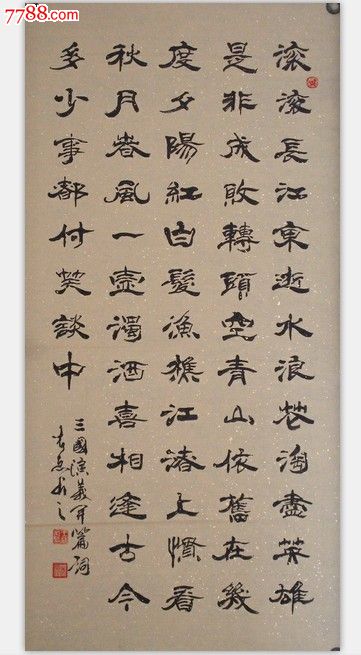 7788.com
滚滚長江東逝水浪花淘盡英雄
是非成敗轉頭空青山依舊在幾
度夕陽紅白髮漁樵江渚上慣看
秋月春風一壺濁酒喜相逢古今
多少事都付笑談中
三國演義開篇詞